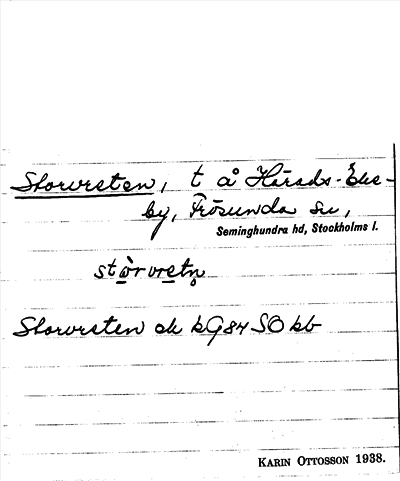 Storvreten, t å Härads-Eke-
by, Frösunda sn,
Seminghundra hd, Stockholms l.
stòrvretn̥
Storvreten ek kG84 SO kb
KARIN OTTOSSON 1938.